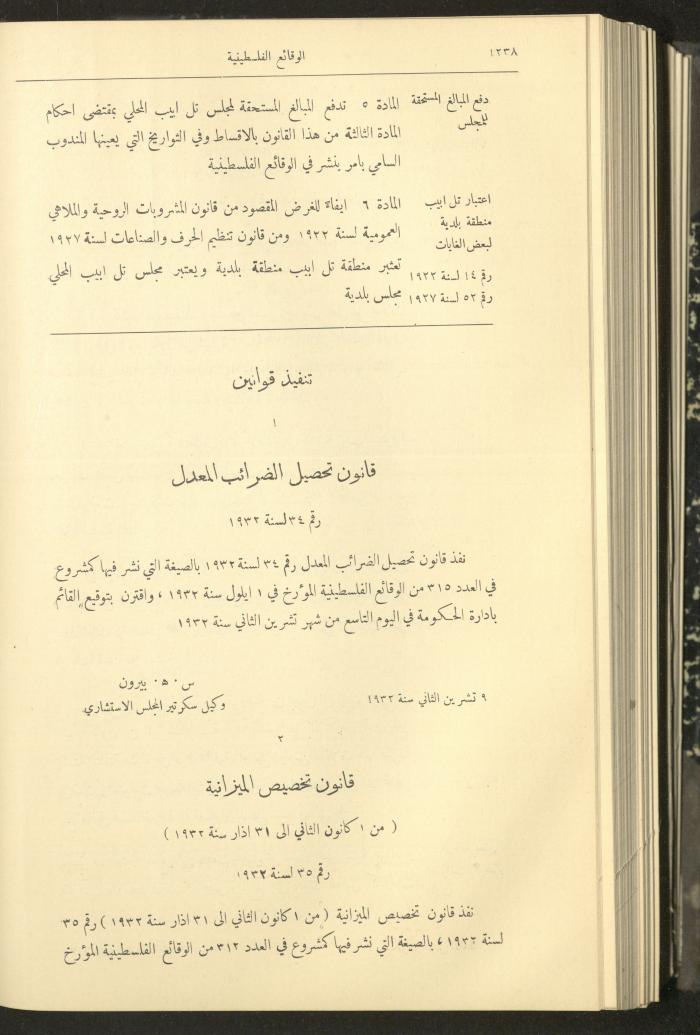 ١٢٣٨
الوقائع الفلسطينية
دفع المبالغ المستحقة
للمجلس
المادة ٥ تدفع المبالغ المستحقة لمجلس تل ابيب المحلي بمقتضى احكام
المادة الثالثة من هذا القانون بالاقساط وفي التواريخ التي يعينها المندوب
السامي بامر ينشر في الوقائع الفلسطينية
اعتبار تل ابيب
منطقة بلدية
لبعض الغايات
رقم ١٤ لسنة ١٩٢٢
رقم ٥٣ لسنة ١٩٢٧
المادة ٦ ايفاءً للغرض المقصود من قانون المشروبات الروحية والملاهي
العمومية لسنة ١٩٢٢ ومن قانون تنظيم الحرف والصناعات لسنة ١٩٢٧
تعتبر منطقة تل ابيب منطقة بلدية ويعتبر مجلس تل ابيب المحلي
مجلس بلدية
تنفيذ قوانين
١
قانون تحصيل الضرائب المعدل
رقم ٣٤ لسنة ١٩٣٢
نفذ قانون تحصيل الضرائب المعدل رقم ٣٤ لسنة ١٩٣٢ بالصيغة التي نشر فيها كمشروع
في العدد ٣١٥ من الوقائع الفلسطينية المؤرخ في ١ ايلول سنة ١٩٣٢ ، واقترن بتوقيع القائم
بادارة الحكومة في اليوم التاسع من شهر تشرين الثاني سنة ١٩٣٢
س . ه . بيرون
٩ تشرين الثاني سنة ١٩٣٢
وكيل سكرتير المجلس الاستشاري
٢
قانون تخصيص الميزانية
( من ١ كانون الثاني الى ٣١ اذار سنة ١٩٣٢ )
رقم ٣٥ لسنة ١٩٣٢
نفذ قانون تخصيص الميزانية ( من ١ كانون الثاني الى ٣١ اذار سنة ١٩٣٢ ) رقم ٣٥
لسنة ١٩٣٢ ، بالصيغة التي نشر فيها كمشروع في العدد ٣١٢ من الوقائع الفلسطينية المؤرخ